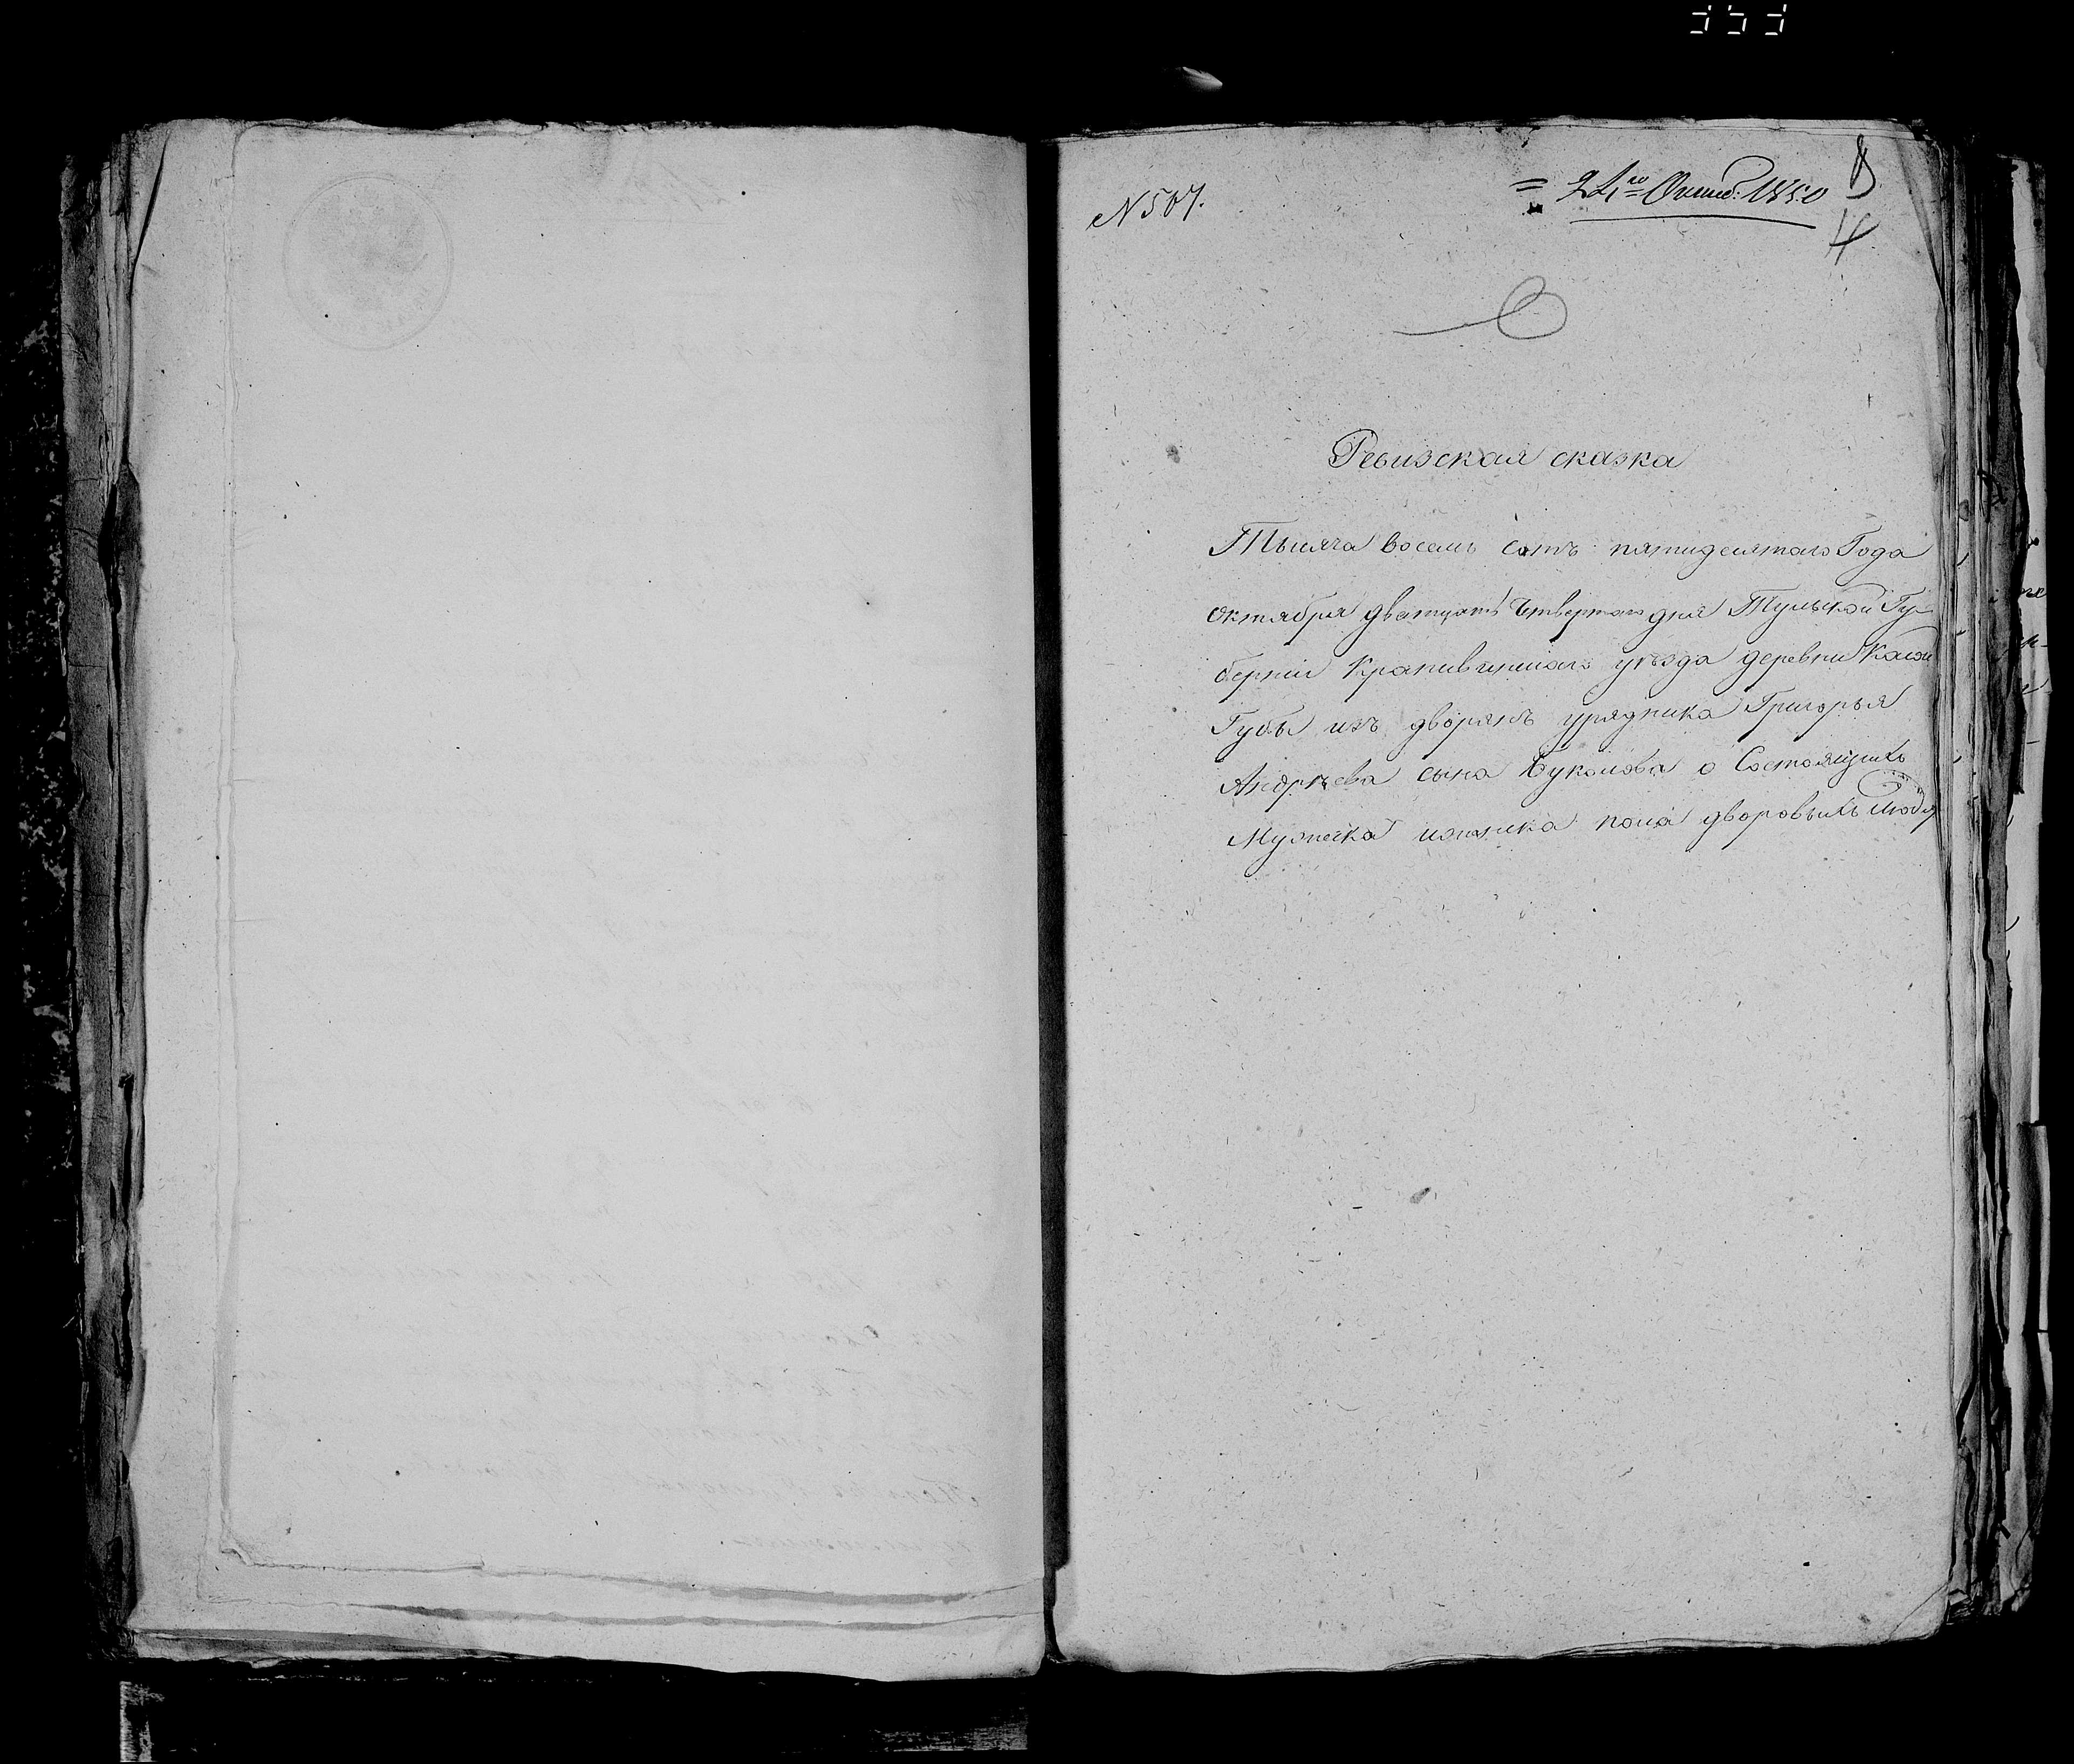 353
N 507.
= 24го Октяб: 1850
Ревизская сказка
Тысяча восемь сотъ пятидесятаго Года
Октября дватцать Четвертаго дня Тульской Гу-
берніи Крапивинскаго уѣзда деревни
Губы изъ дворянъ урядника Григорья
Андреева сына Буколова о Состоящихъ
Мужеска иженска пола дворовыхъ людя